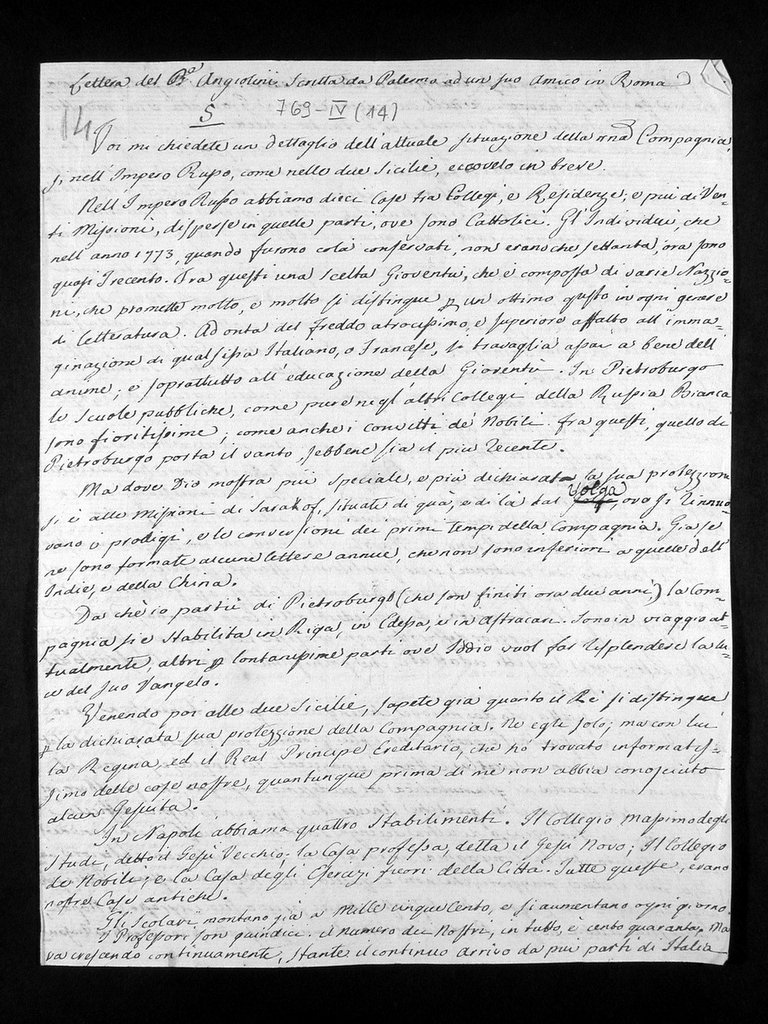 Lettera del Pre Angiolini Scritta da Palermo ad un suo Amico in Roma
S 769-IV (14)
14
Voi mi chiedete un dettaglio dell'attuale situazione della nra Compagnia,
sì nell'Impero Russo, come nelle due Sicilie, eccovelo in breve.
Nell'Impero Russo abbiamo dieci Case tra Collegj, e Residenze, e più di Ven-
ti Missioni, disperse in quelle parti, ove sono Cattolici. Gl'Individui, che
nell'anno 1773, quando furono colà conservati, non erano che settanta, ora sono
quasi Trecento. Tra questi una scelta Gioventù, che è composta di varie Nazzio-
ni, che promette molto, e molto si distingue p un ottimo gusto in ogni genere
di letteratura. Ad onta del freddo atrocissimo, e superiore affatto all'imma-
ginazione di qualsisia Italiano, o Francese, si travaglia assai a bene dell'
anime, e soprattutto all'educazione della Gioventù. In Pietroburgo
le Scuole pubbliche, come pure negl'altri Collegi della Russia Bianca
sono fioritissime, come anche i Convitti de' Nobili. fra questi, quello di
Pietroburgo porta il vanto, sebbene sia il più recente.
Ma dove Dio mostra più speciale, e più dichiarata la sua protezzione
si è alle Missioni di Saratof, situate di quà, e di là dal Volga ove si rinnuo-
vano i prodigj, e le conversioni dei primi tempi della Compagnia. Già se
ne sono formate alcune lettere annue, che non sono inferiori a quelle dell'
Indie, e della China.
Da che io partii di Pietroburgo (che son finiti ora due anni) la Com-
pagnia si è stabilita in Riga, in Odessa, e in Astracan. Sono in viaggio at-
tualmente, altri p lontanissime parti ove Iddio vuol far risplendere la lu-
ce del suo Vangelo.
Venendo poi alle due Sicilie, sapete già quanto il Rè si distingue
p la dichiarata sua protezzione della Compagnia. Ne egli solo; ma con lui
la Regina, ed il Real Principe Ereditario, che ho trovato informatis-
simo delle cose nostre, quantunque prima di me non abbia conosciuto
alcun Gesuita.
In Napoli abbiamo quattro Stabilimenti. Il Collegio Massimo degli
Studi, detto il Gesù Vecchio: la Casa professa, detta il Gesù Novo; Il Collegio
de Nobili; e la Casa degli Esercizj fuori della Città. Tutte queste, erano
nostre Case antiche.
Gli Scolari montano già a Mille cinque Cento, e si aumentano ogni giorno.
I Professori son quindici. il numero dei Nostri, in tutto, è cento quaranta, Ma
va crescendo continuamente, stante il continuo arrivo da più parti di Italia